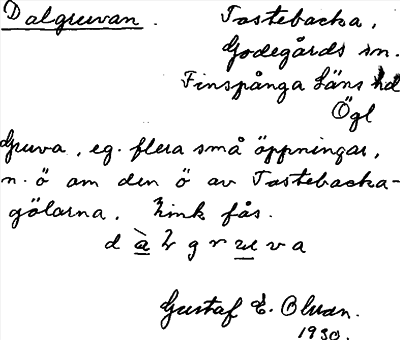 Dalgruvan. Tostebacka,
Godegårds sn.
Finspånga läns hd
Ögl
Gruva, eg. flera små öppningar,
n. ö om den ö av Tostebacka-
gölarna. Zink fås.
d à l g r u v a
Gustaf E. Olsson.
1930.